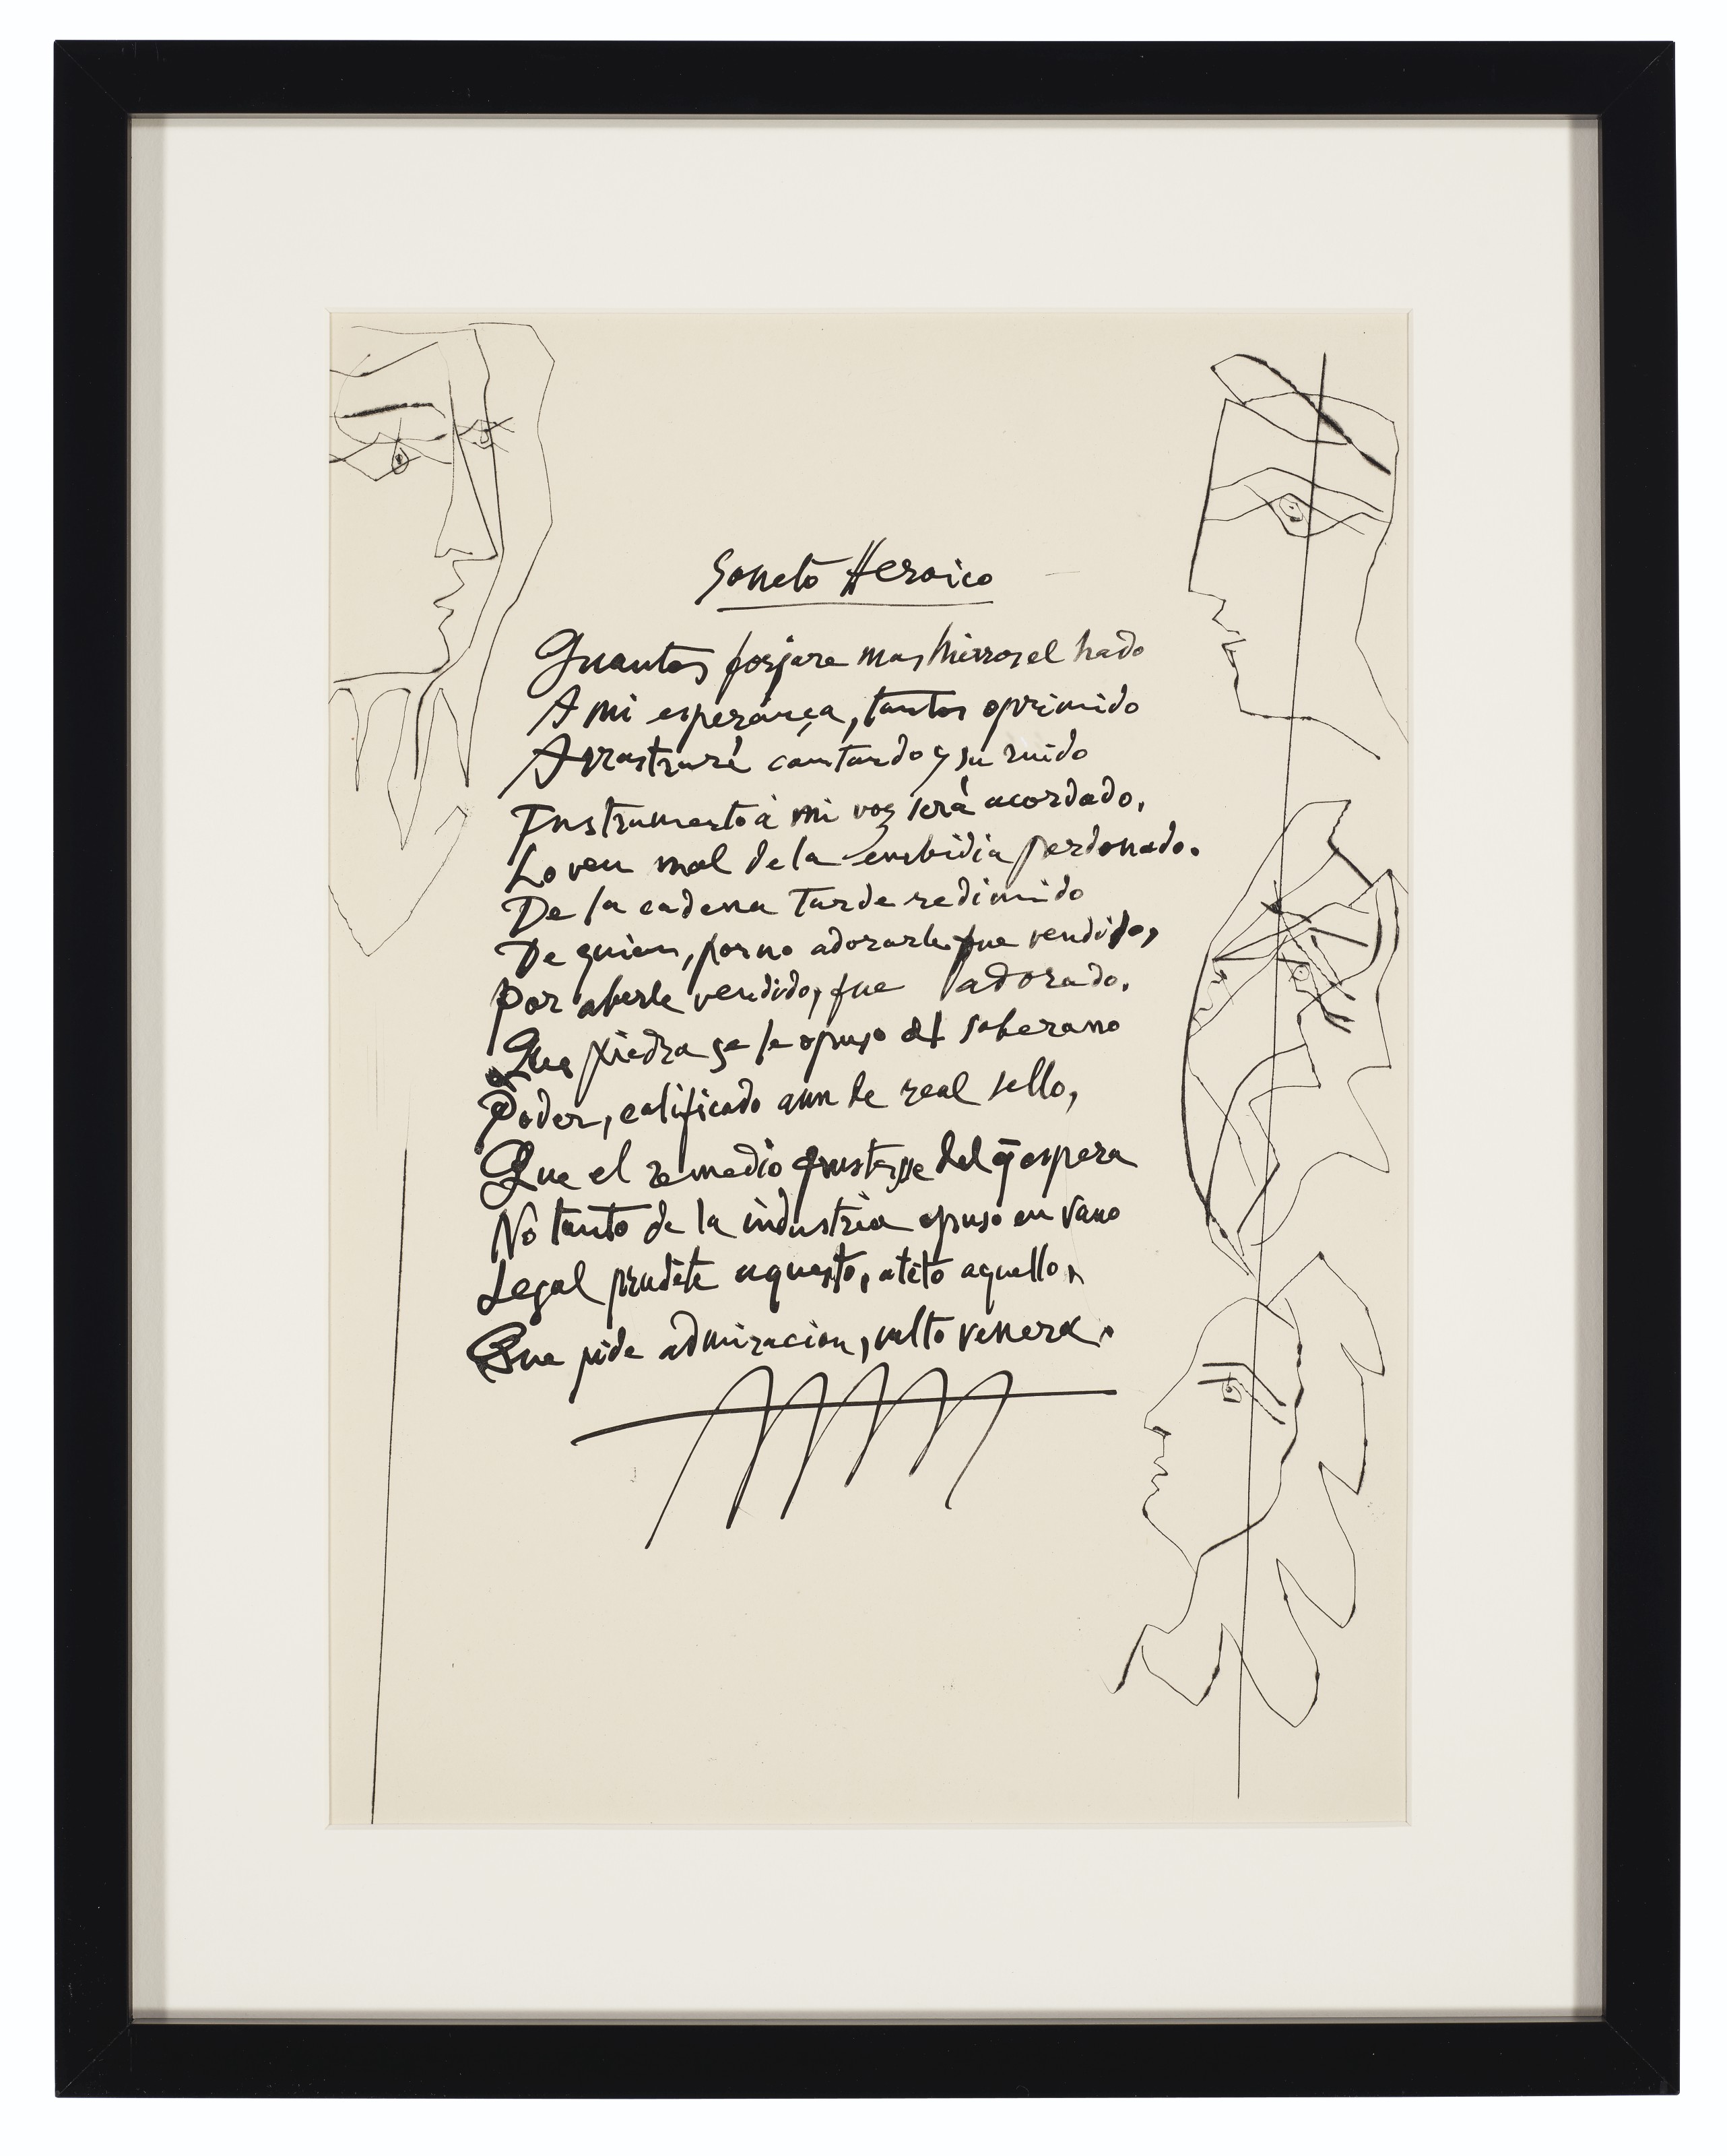 Soneto Heroico
Quantos forjare mas hierros el hado
A mi esperança, tantos oprimido
Arrastraré cantando y su ruido
Instrumento à mi voz serà acordado.
Joven mal de la embidia perdonado.
De la cadena tarde redimido
De quien, por no adorarle fue vendido,
Por aberle vendido, fue adorado.
Que piedra se le opuso al soberano
Poder, calificado aun de real sello,
Que el remedio frustasse del q̄ espera
No tanto de la industria opuso en vano
Legal prudēte aquesto, atēto aquello,
Que pide admiracion, culto venera.